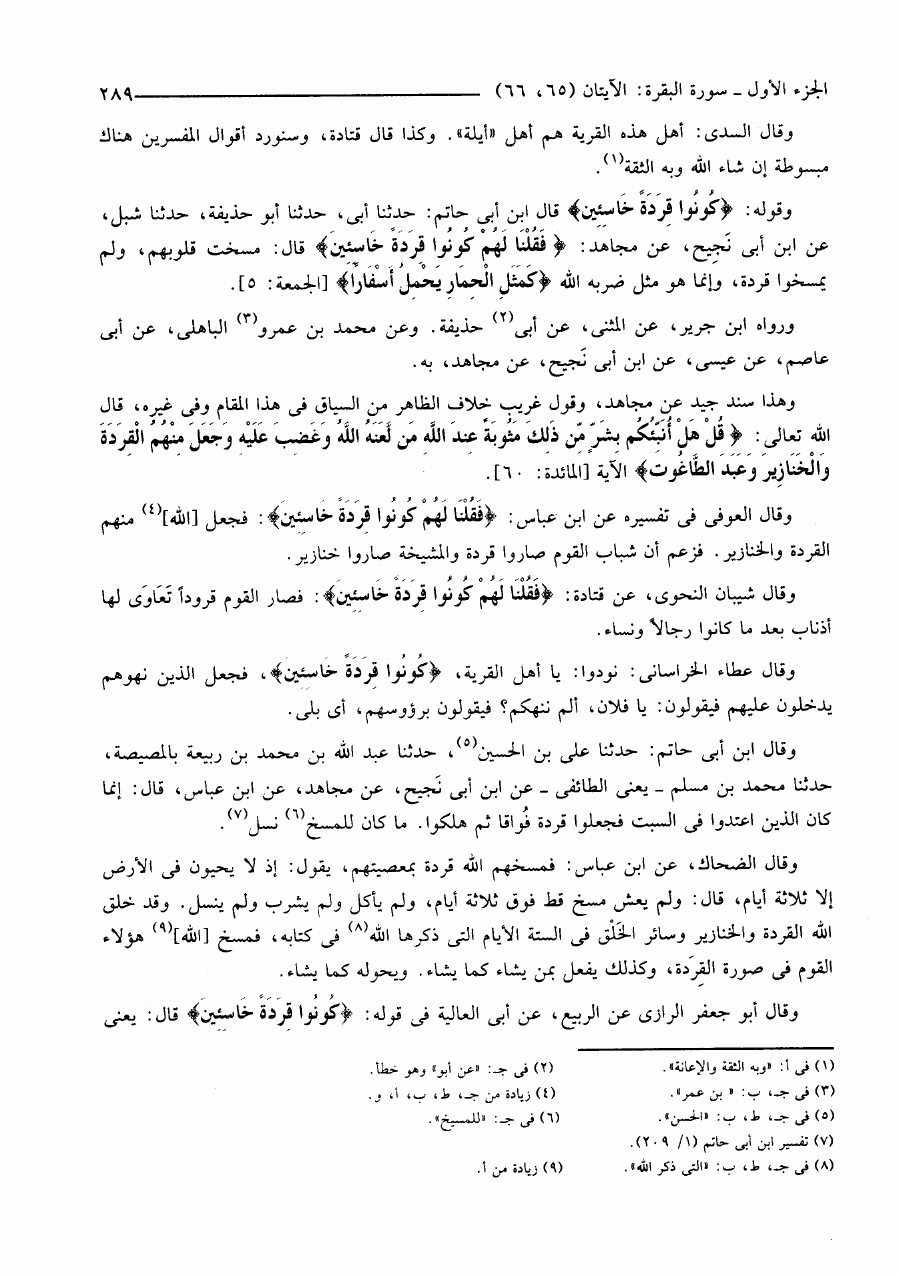 الجزء الأول ـ سورة البقرة: الآيتان (٦٥، ٦٦) ٢٨٩
وقال السدى: أهل هذه القرية هم أهل «أيلة». وكذا قال قتادة، وسنورد أقوال المفسرين هناك
مبسوطة إن شاء الله وبه الثقة(١).
وقوله: ﴿كُونُوا قِرَدَةً خَاسِئِينَ﴾ قال ابن أبى حاتم: حدثنا أبى، حدثنا أبو حذيفة، حدثنا شبل،
عن ابن أبى نَجيح، عن مجاهد: ﴿ فَقُلْنَا لَهُمْ كُونُوا قِرَدَةً خَاسِئِينَ﴾ قال: مسخت قلوبهم، ولم
يمسخوا قردة، وإنما هو مثل ضربه الله ﴿كَمَثَلِ الْحِمَارِ يَحْمِلُ أَسْفَارًا﴾ [الجمعة: ٥].
ورواه ابن جرير، عن المثنى، عن أبى(٢) حذيفة. وعن محمد بن عمرو(٣) الباهلى، عن أبى
عاصم، عن عيسى، عن ابن أبى نَجيح، عن مجاهد، به.
وهذا سند جيد عن مجاهد، وقول غريب خلاف الظاهر من السياق فى هذا المقام وفى غيره، قال
الله تعالى: ﴿ قُلْ هَلْ أُنَبِّئُكُم بِشَرٍّ مِّن ذَلِكَ مَثُوبَةً عِندَ اللَّهِ مَن لَّعَنَهُ اللَّهُ وَغَضِبَ عَلَيْهِ وَجَعَلَ مِنْهُمُ الْقِرَدَةَ
وَالْخَنَازِيرَ وَعَبَدَ الطَّاغُوتَ﴾ الآية [المائدة: ٦٠].
وقال العوفى فى تفسيره عن ابن عباس: ﴿فَقُلْنَا لَهُمْ كُونُوا قِرَدَةً خَاسِئِينَ﴾: فجعل [الله](٤) منهم
القردة والخنازير. فزعم أن شباب القوم صاروا قردة والمشيخة صاروا خنازير.
وقال شيبان النحوى، عن قتادة: ﴿فَقُلْنَا لَهُمْ كُونُوا قِرَدَةً خَاسِئِينَ﴾: فصار القوم قروداً تَعَاوَى لها
أذناب بعد ما كانوا رجالاً ونساء.
وقال عطاء الخراسانى: نودوا: يا أهل القرية، ﴿كُونُوا قِرَدَةً خَاسِئِينَ﴾، فجعل الذين نهوهم
يدخلون عليهم فيقولون: يا فلان، ألم ننهكم؟ فيقولون برؤوسهم، أى بلى.
وقال ابن أبى حاتم: حدثنا على بن الحسين(٥)، حدثنا عبد الله بن محمد بن ربيعة بالمصيصة،
حدثنا محمد بن مسلم ـ يعنى الطائفى ـ عن ابن أبى نَجيح، عن مجاهد، عن ابن عباس، قال: إنما
كان الذين اعتدوا فى السبت فجعلوا قردة فُواقا ثم هلكوا. ما كان للمسخ(٦) نسل(٧).
وقال الضحاك، عن ابن عباس: فمسخهم الله قردة بمعصيتهم، يقول: إذ لا يحيون فى الأرض
إلا ثلاثة أيام، قال: ولم يعش مسخ قط فوق ثلاثة أيام، ولم يأكل ولم يشرب ولم ينسل. وقد خلق
الله القردة والخنازير وسائر الخَلْق فى الستة الأيام التى ذكرها الله(٨) فى كتابه، فمسخ [الله](٩) هؤلاء
القوم فى صورة القرَدة، وكذلك يفعل بمن يشاء كما يشاء. ويحوله كما يشاء.
وقال أبو جعفر الرازى عن الربيع، عن أبى العالية فى قوله: ﴿كُونُوا قِرَدَةً خَاسِئِينَ﴾ قال: يعنى
(١) فى أ: «وبه الثقة والإعانة». (٢) فى جـ: «عن أبو» وهو خطأ.
(٣) فى جـ، ب: « بن عمر». (٤) زيادة من جـ، ط، ب، أ، و.
(٥) فى جـ، ط، ب: «الحسن». (٦) فى جـ: «للمسيخ».
(٧) تفسير ابن أبى حاتم (١/ ٢٠٩).
(٨) فى جـ، ط، ب: «التى ذكر الله». (٩) زيادة من أ.